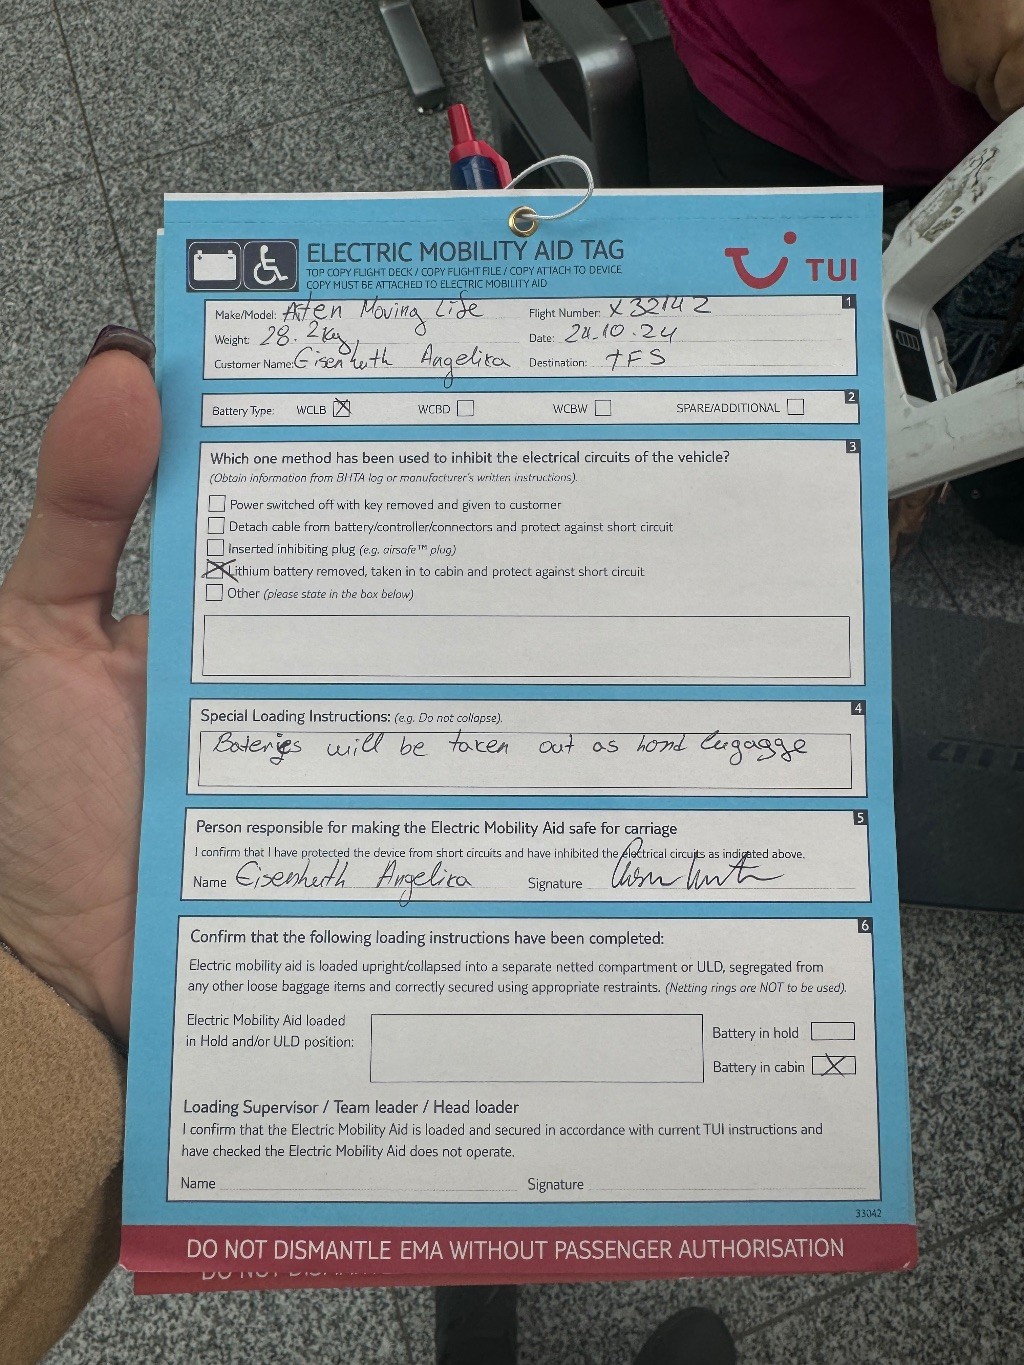 ELECTRIC MOBILITY AID TAG
TUI
TOP COPY FLIGHT DECK / COPY FLIGHT FILE / COPY ATTACH TO DEVICE
COPY MUST BE ATTACHED TO ELECTRIC MOBILITY AID
1
Make/Model: Aten Moving Life Flight Number: X32142
Weight: 28.2kg Date: 24.10.24
Customer Name: Eisenhuth Angelika Destination: TFS
2
Battery Type: WCLB WCBD WCBW SPARE/ADDITIONAL
3
Which one method has been used to inhibit the electrical circuits of the vehicle?
(Obtain information from BHTA log or manufacturer's written instructions).
Power switched off with key removed and given to customer
Detach cable from battery/controller/connectors and protect against short circuit
Inserted inhibiting plug (e.g. airsafe™ plug)
Lithium battery removed, taken in to cabin and protect against short circuit
Other (please state in the box below)
4
Special Loading Instructions: (e.g. Do not collapse).
Bateries will be taken out as hand lugagge
5
Person responsible for making the Electric Mobility Aid safe for carriage
I confirm that I have protected the device from short circuits and have inhibited the electrical circuits as indicated above.
Name Eisenhuth Angelika Signature
6
Confirm that the following loading instructions have been completed:
Electric mobility aid is loaded upright/collapsed into a separate netted compartment or ULD, segregated from
any other loose baggage items and correctly secured using appropriate restraints. (Netting rings are NOT to be used).
Electric Mobility Aid loaded
in Hold and/or ULD position:
Battery in hold
Battery in cabin
Loading Supervisor / Team leader / Head loader
I confirm that the Electric Mobility Aid is loaded and secured in accordance with current TUI instructions and
have checked the Electric Mobility Aid does not operate.
Name Signature
33042
DO NOT DISMANTLE EMA WITHOUT PASSENGER AUTHORISATION